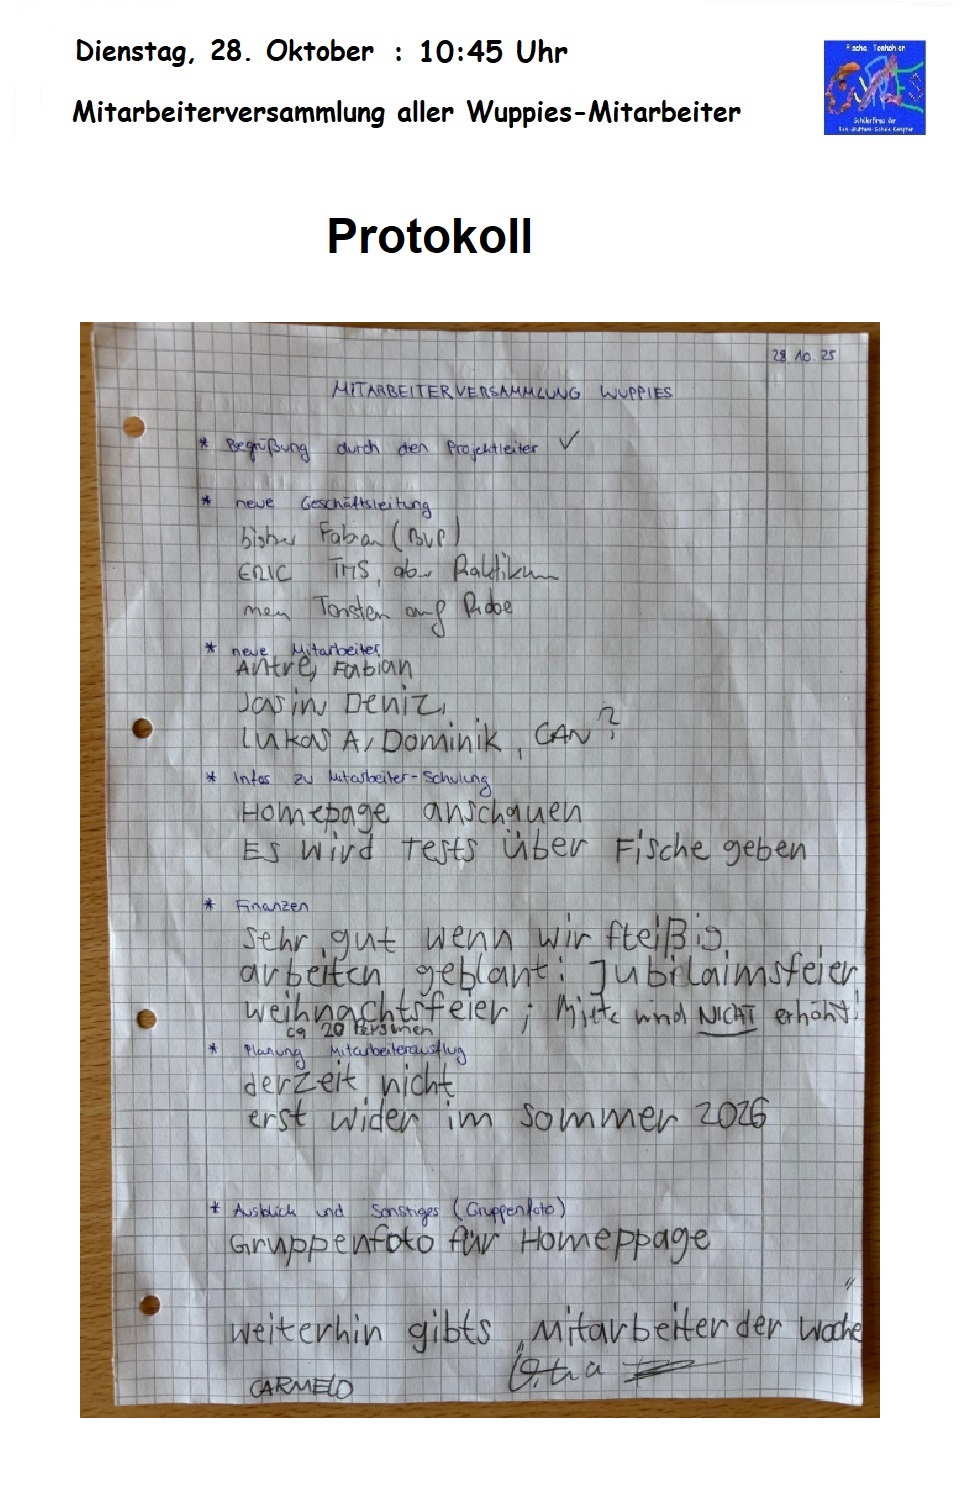 Dienstag, 28. Oktober : 10:45 Uhr
Mitarbeiterversammlung aller Wuppies-Mitarbeiter
Schülerfirma der
Protokoll
28 10. 25
MITARBEITERVERSAMMLUNG WUPPIES
* Begrüßung durch den Projektleiter ✓
* neue Geschäftsleitung
bisher Fabian (BVP)
ERIC TMS, aber Praktikum
Torsten auf Probe
* neue Mitarbeiter
Antre, Fabian
Jasin, Deniz,
Lukas A, Dominik, CAN?
* Infos zu Mitarbeiter-Schulung
Homepage anschauen
Es wird Tests über Fische geben
* Finanzen
sehr gut wenn wir fleißig
arbeiten geblant: Jubilaimsfeier
weihnachtsfeier; Miete wird NICHT erhöht!
ca 20 Personen
* Planung Mitarbeiterausflug
derzeit nicht
erst wider im Sommer 2026
* Ausblick und Sonstiges (Gruppenfoto)
Gruppenfoto für Homeppage
weiterhin gibts „Mitarbeiter der Woche"
CARMELO